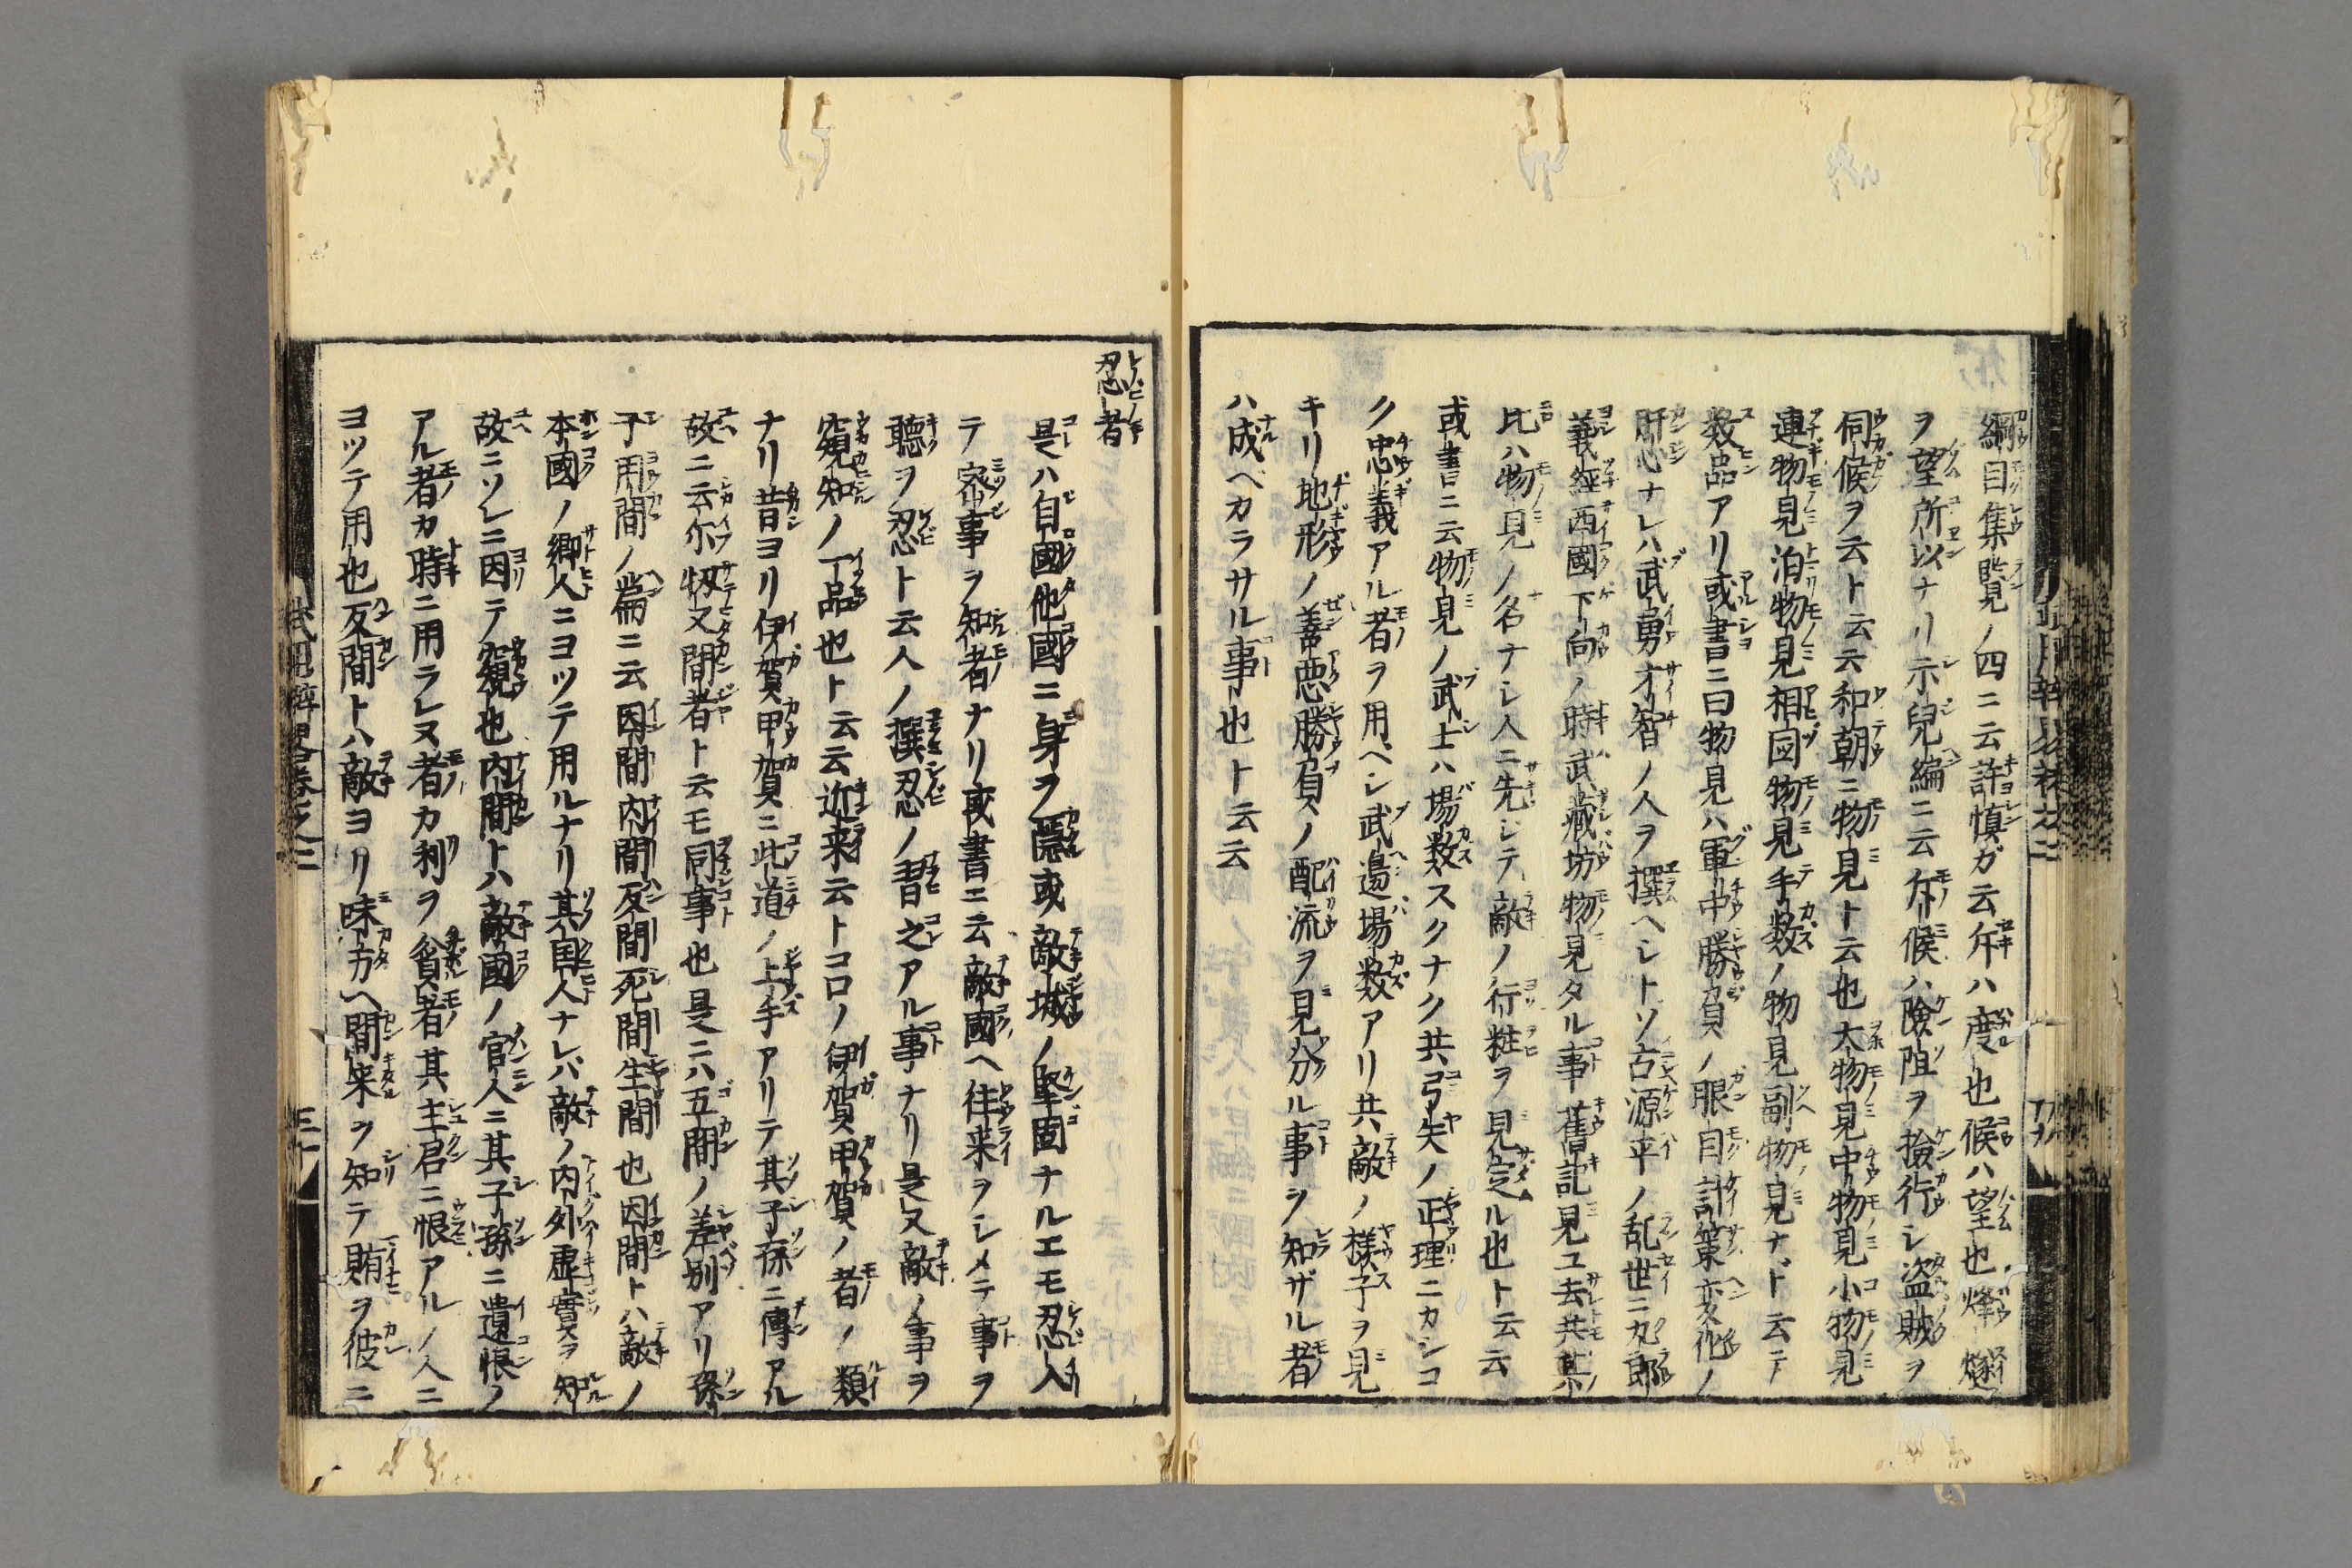 綱目集覧ノ四ニ云許慎ガ云斥ハ度也候ハ望也烽燧
ヲ望所以ナリ示兒編ニ云斥候ハ險阻ヲ撿行シ盗賊ヲ
伺候ヲ云ト云云和朝ニ物見ト云也大物見中物見小物見
連物見泊物見相図物見手数ノ物見副物見ナドト云テ
数品アリ或書ニ曰物見ハ軍中勝負ノ眼目計策変化ノ
肝心ナレハ武勇才智ノ人ヲ撰ヘシトソ古源平ノ乱世ニ九郎
義經西國下向ノ時武藏坊物見タル事舊記ニ見ユ去共其
比ハ物見ノ名ナシ人ニ先シテ敵ノ行粧ヲ見定ル也ト云云
或書ニ云物見ノ武士ハ場数スクナク共弓矢ノ正理ニカシコ
ク忠義アル者ヲ用ベシ武邉場数アリ共敵ノ様子ヲ見
キリ地形ノ善悪勝負ノ配流ヲ見分ル事ヲ知ザル者
ハ成ベカラサル事也ト云云
忍者
是ハ自國他國ニ身ヲ隱或敵城ノ堅固ナルエモ忍入
テ密事ヲ知者ナリ或書ニ云敵國ヘ往来ヲシメテ事ヲ
聽ヲ忍ト云人ノ撰忍ノ習之アル事ナリ是又敵ノ事ヲ
窺知ノ一品也ト云云近来云トコロノ伊賀甲賀ノ者ノ類
ナリ昔ヨリ伊賀甲賀ニ此道ノ上手アリテ其子孫ニ傳アル
故ニ云尓扨又間者ト云モ同事也是ニハ五間ノ差別アリ孫
子用間ノ篇ニ云因間内間反間死間生間也因間トハ敵ノ
本國ノ郷人ニヨツテ用ルナリ其国人ナレバ敵ノ内外虚實ヲ知
故ニソレニ因テ窺也内間トハ敵國ノ官人ニ其子孫ニ遺恨ノ
アル者カ時ニ用ラレヌ者カ利ヲ貪者其主君ニ恨アルノ人ニ
ヨツテ用也反間トハ敵ヨリ味方ヘ間来ヲ知テ賄ヲ彼ニ
武用辨畧巻之二
三十